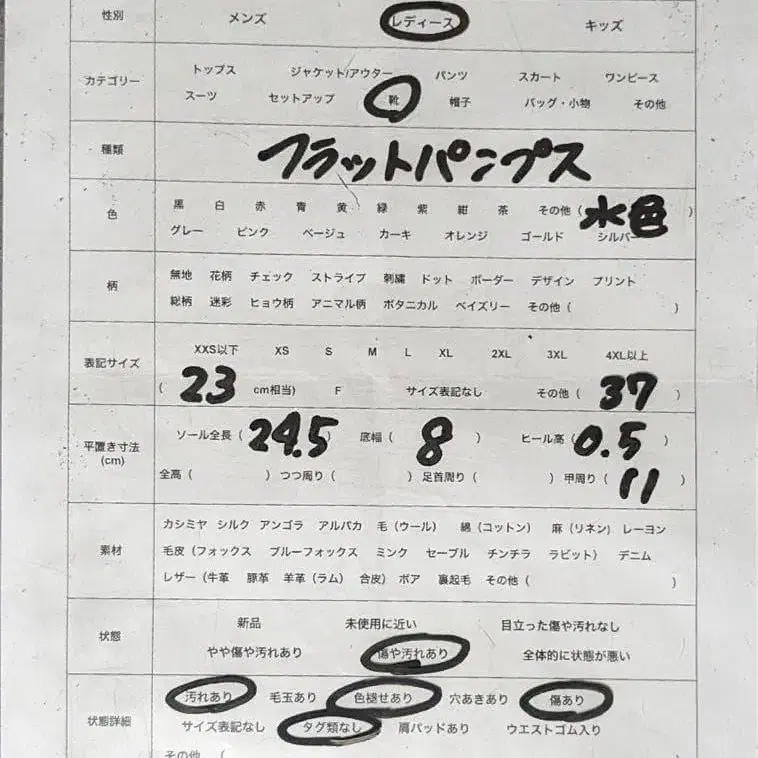 性別 メンズ レディース キッズ
カテゴリー トップス ジャケット/アウター パンツ スカート ワンピース
スーツ セットアップ 靴 帽子 バッグ・小物 その他
種類 フラットパンプス
色 黒 白 赤 青 黄 緑 紫 紺 茶 その他 (水色)
グレー ピンク ベージュ カーキ オレンジ ゴールド シルバー
柄 無地 花柄 チェック ストライプ 刺繍 ドット ボーダー デザイン プリント
総柄 迷彩 ヒョウ柄 アニマル柄 ボタニカル ペイズリー その他 ( )
表記サイズ XXS以下 XS S M L XL 2XL 3XL 4XL以上
(23 cm相当) F サイズ表記なし その他 (37)
平置き寸法 (cm) ソール全長 (24.5) 底幅 (8) ヒール高 (0.5)
全高 ( ) つつ周り ( ) 足首周り ( ) 甲周り (11)
素材 カシミヤ シルク アンゴラ アルパカ 毛 (ウール) 綿 (コットン) 麻 (リネン) レーヨン
毛皮 (フォックス ブルーフォックス ミンク セーブル チンチラ ラビット) デニム
レザー (牛革 豚革 羊革 (ラム) 合皮) ボア 裏起毛 その他 ( )
状態 新品 未使用に近い 目立った傷や汚れなし
やや傷や汚れあり 傷や汚れあり 全体的に状態が悪い
状態詳細 汚れあり 毛玉あり 色褪せあり 穴あきあり 傷あり
サイズ表記なし タグ類なし 肩パッドあり ウエストゴム入り
その他 (